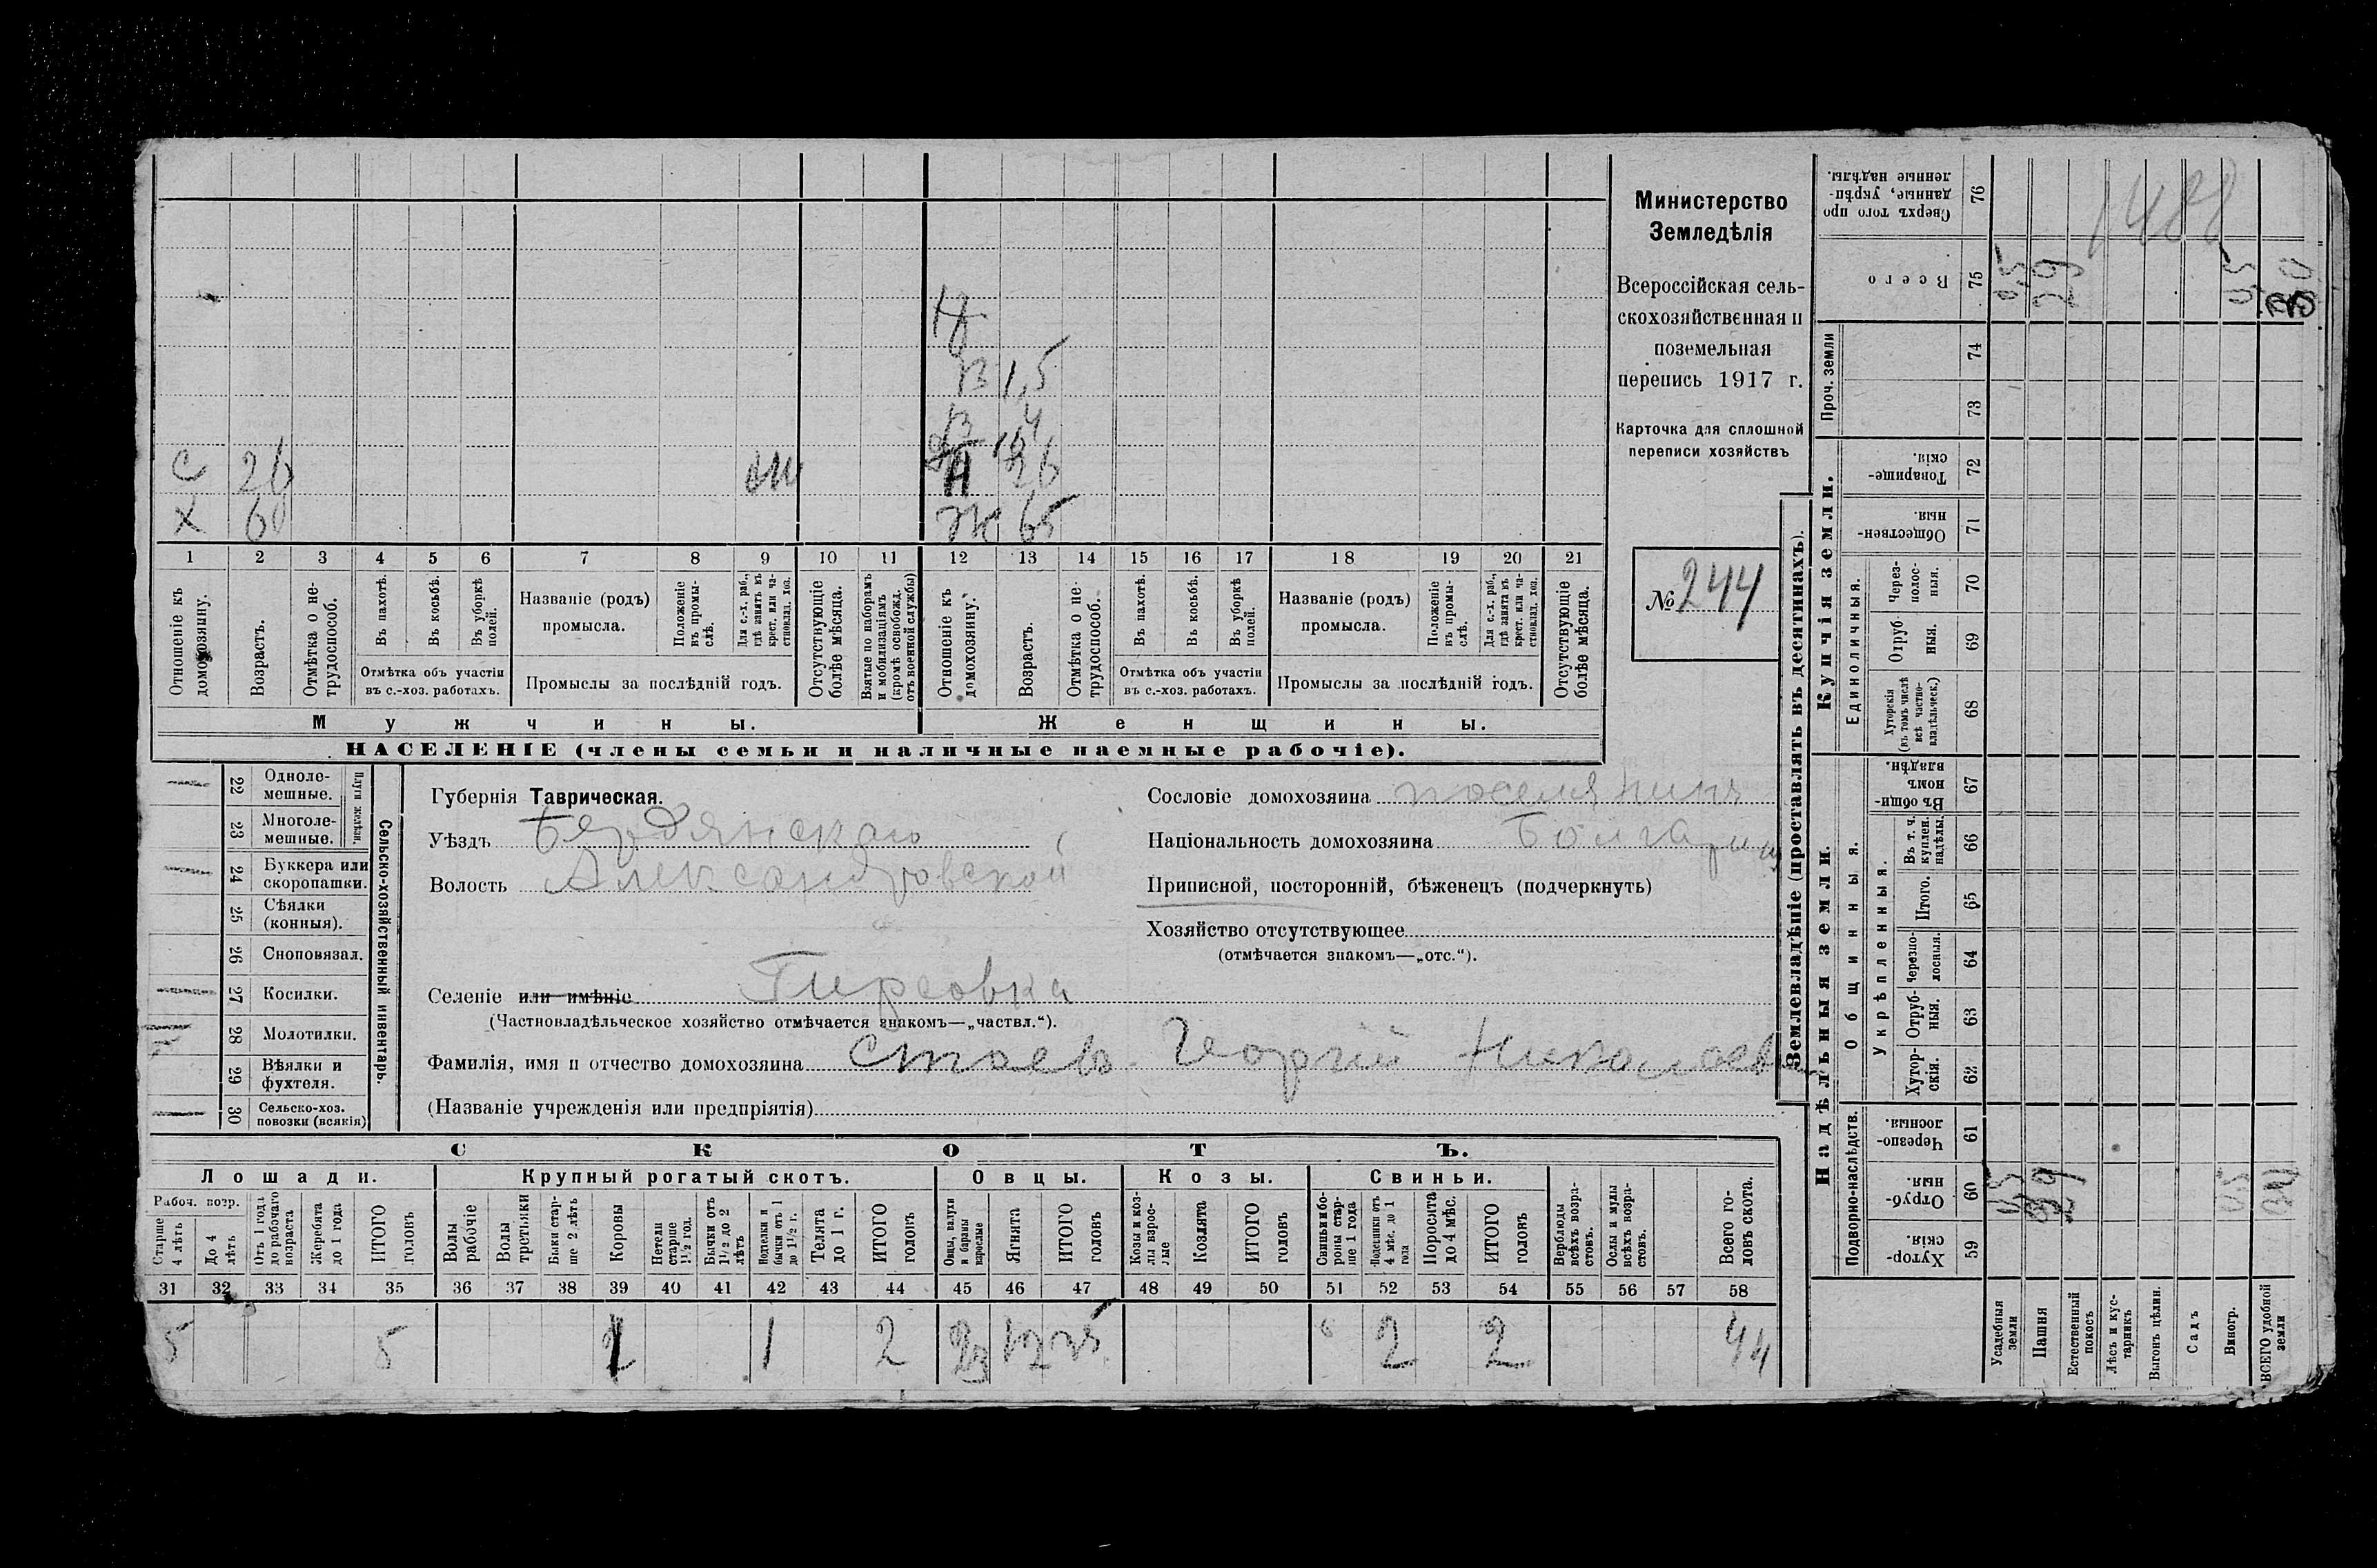 Министерство
Земледѣлія
Всероссійская сель-
скохозяйственная и
поземельная
перепись 1917 г.
Карточка для сплошной
переписи хозяйствъ
№ 244
1488
Н
В 1,5
В 4
С 26 Н 26
Х 60 Ж 65
1 2 3 4 5 6 7 8 9 10 11 12 13 14 15 16 17 18 19 20 21
Отношеніе къ домохозяину.
Возрастъ.
Отмѣтка о не-трудоспособ.
Въ пахотѣ.
Въ косьбѣ.
Въ уборкѣ полей.
Отмѣтка объ участіи
въ с.-хоз. работахъ.
Названіе (родъ)
промысла.
Положеніе въ промы-слѣ.
Для с.-х. раб., гдѣ занятъ въ крест. или ча-стновлад. хоз.
Промыслы за послѣдній годъ.
Отсутствующіе болѣе мѣсяца.
Взятые по наборамъ и мобилизаціямъ (кромѣ освобожд. отъ военной службы)
Отношеніе къ домохозяину.
Возрастъ.
Отмѣтка о не-трудоспособ.
Въ пахотѣ.
Въ косьбѣ.
Въ уборкѣ полей.
Отмѣтка объ участіи
въ с.-хоз. работахъ.
Названіе (родъ)
промысла.
Положеніе въ промы-слѣ.
Для с.-х. раб., гдѣ занята въ крест. или ча-стновлад. хоз.
Промыслы за послѣдній годъ.
Отсутствующіе болѣе мѣсяца.
Мужчины. Женщины.
НАСЕЛЕНІЕ (члены семьи и наличные наемные рабочіе).
22 Одноле-мешные.
23 Многоле-мешные.
Плуги желѣзн.
24 Буккера или скоропашки.
25 Сѣялки (конныя).
26 Сноповязал.
27 Косилки.
28 Молотилки.
29 Вѣялки и фухтеля.
30 Сельско-хоз. повозки (всякія)
Сельско-хозяйственный инвентарь.
Губернія Таврическая.
Уѣздъ Бердянскаго
Волость Александровской
Селеніе или имѣніе Гирсовка
(Частновладѣльческое хозяйство отмѣчается знакомъ—„частвл.“).
Фамилія, имя и отчество домохозяина Стоевъ Георгій Николаев
(Названіе учрежденія или предпріятія)
Сословіе домохозяина поселянинъ
Національность домохозяина Болгаринъ
Приписной, посторонній, бѣженецъ (подчеркнуть)
Хозяйство отсутствующее
(отмѣчается знакомъ—„отс.“).
СКОТЪ.
Лошади. Крупный рогатый скотъ. Овцы. Козы. Свиньи.
Рабоч. возр.
Старше 4 лѣтъ
До 4 лѣтъ
Отъ 1 года до рабочаго возраста
Жеребята до 1 года
ИТОГО головъ
Волы рабочіе
Волы третьяки
Быки стар-ше 2 лѣтъ
Коровы
Нетели старше 1½ год.
Бычки отъ 1½ до 2 лѣтъ
Подтелки и бычки отъ 1 до 1½ г.
Телята до 1 г.
ИТОГО головъ
Овцы, валухи и бараны взрослые
Ягнята
ИТОГО головъ
Козы и коз-лы взрос-лые
Козлята
ИТОГО головъ
Свиньи и бо-роны стар-ше 1 года
Подсвинки отъ 4 мѣс. до 1 года
Поросята до 4 мѣс.
ИТОГО головъ
Верблюды всѣхъ возра-стовъ.
Ослы и мулы всѣхъ возра-стовъ.
Всего го-ловъ скота.
31 32 33 34 35 36 37 38 39 40 41 42 43 44 45 46 47 48 49 50 51 52 53 54 55 56 57 58
5 5 1 1 2 23 12 35 2 2 44
Землевладѣніе (проставлять въ десятинахъ).
Купчія земли.
Надѣльныя земли.
Сверхъ того про-данные, укрѣп-ленные надѣлы. 76
Всего 75
Проч. земли 74 73
Товарище-скія. 72
Обществен-ныя. 71
Единоличныя.
Через-полос-ныя. 70
Отруб-ныя. 69
Хуторскія (въ томъ числѣ всѣ частно-владѣльческ.) 68
Общинныя.
Въ общи-номъ владѣн. 67
Укрѣпленныя.
Въ т. ч. куплен. надѣлы. 66
Итого. 65
Черезпо-лосныя. 64
Отруб-ныя. 63
Хутор-скія. 62
Подворно-наслѣдств.
Черезпо-лосныя. 61
Отруб-ныя. 60
Хутор-скія. 59
Усадебныя земли
Пашня
Естественный покосъ
Лѣсъ и кус-тарникъ
Выгонъ цѣлин.
Садъ
Виногр.
ВСЕГО удобной земли
29
29